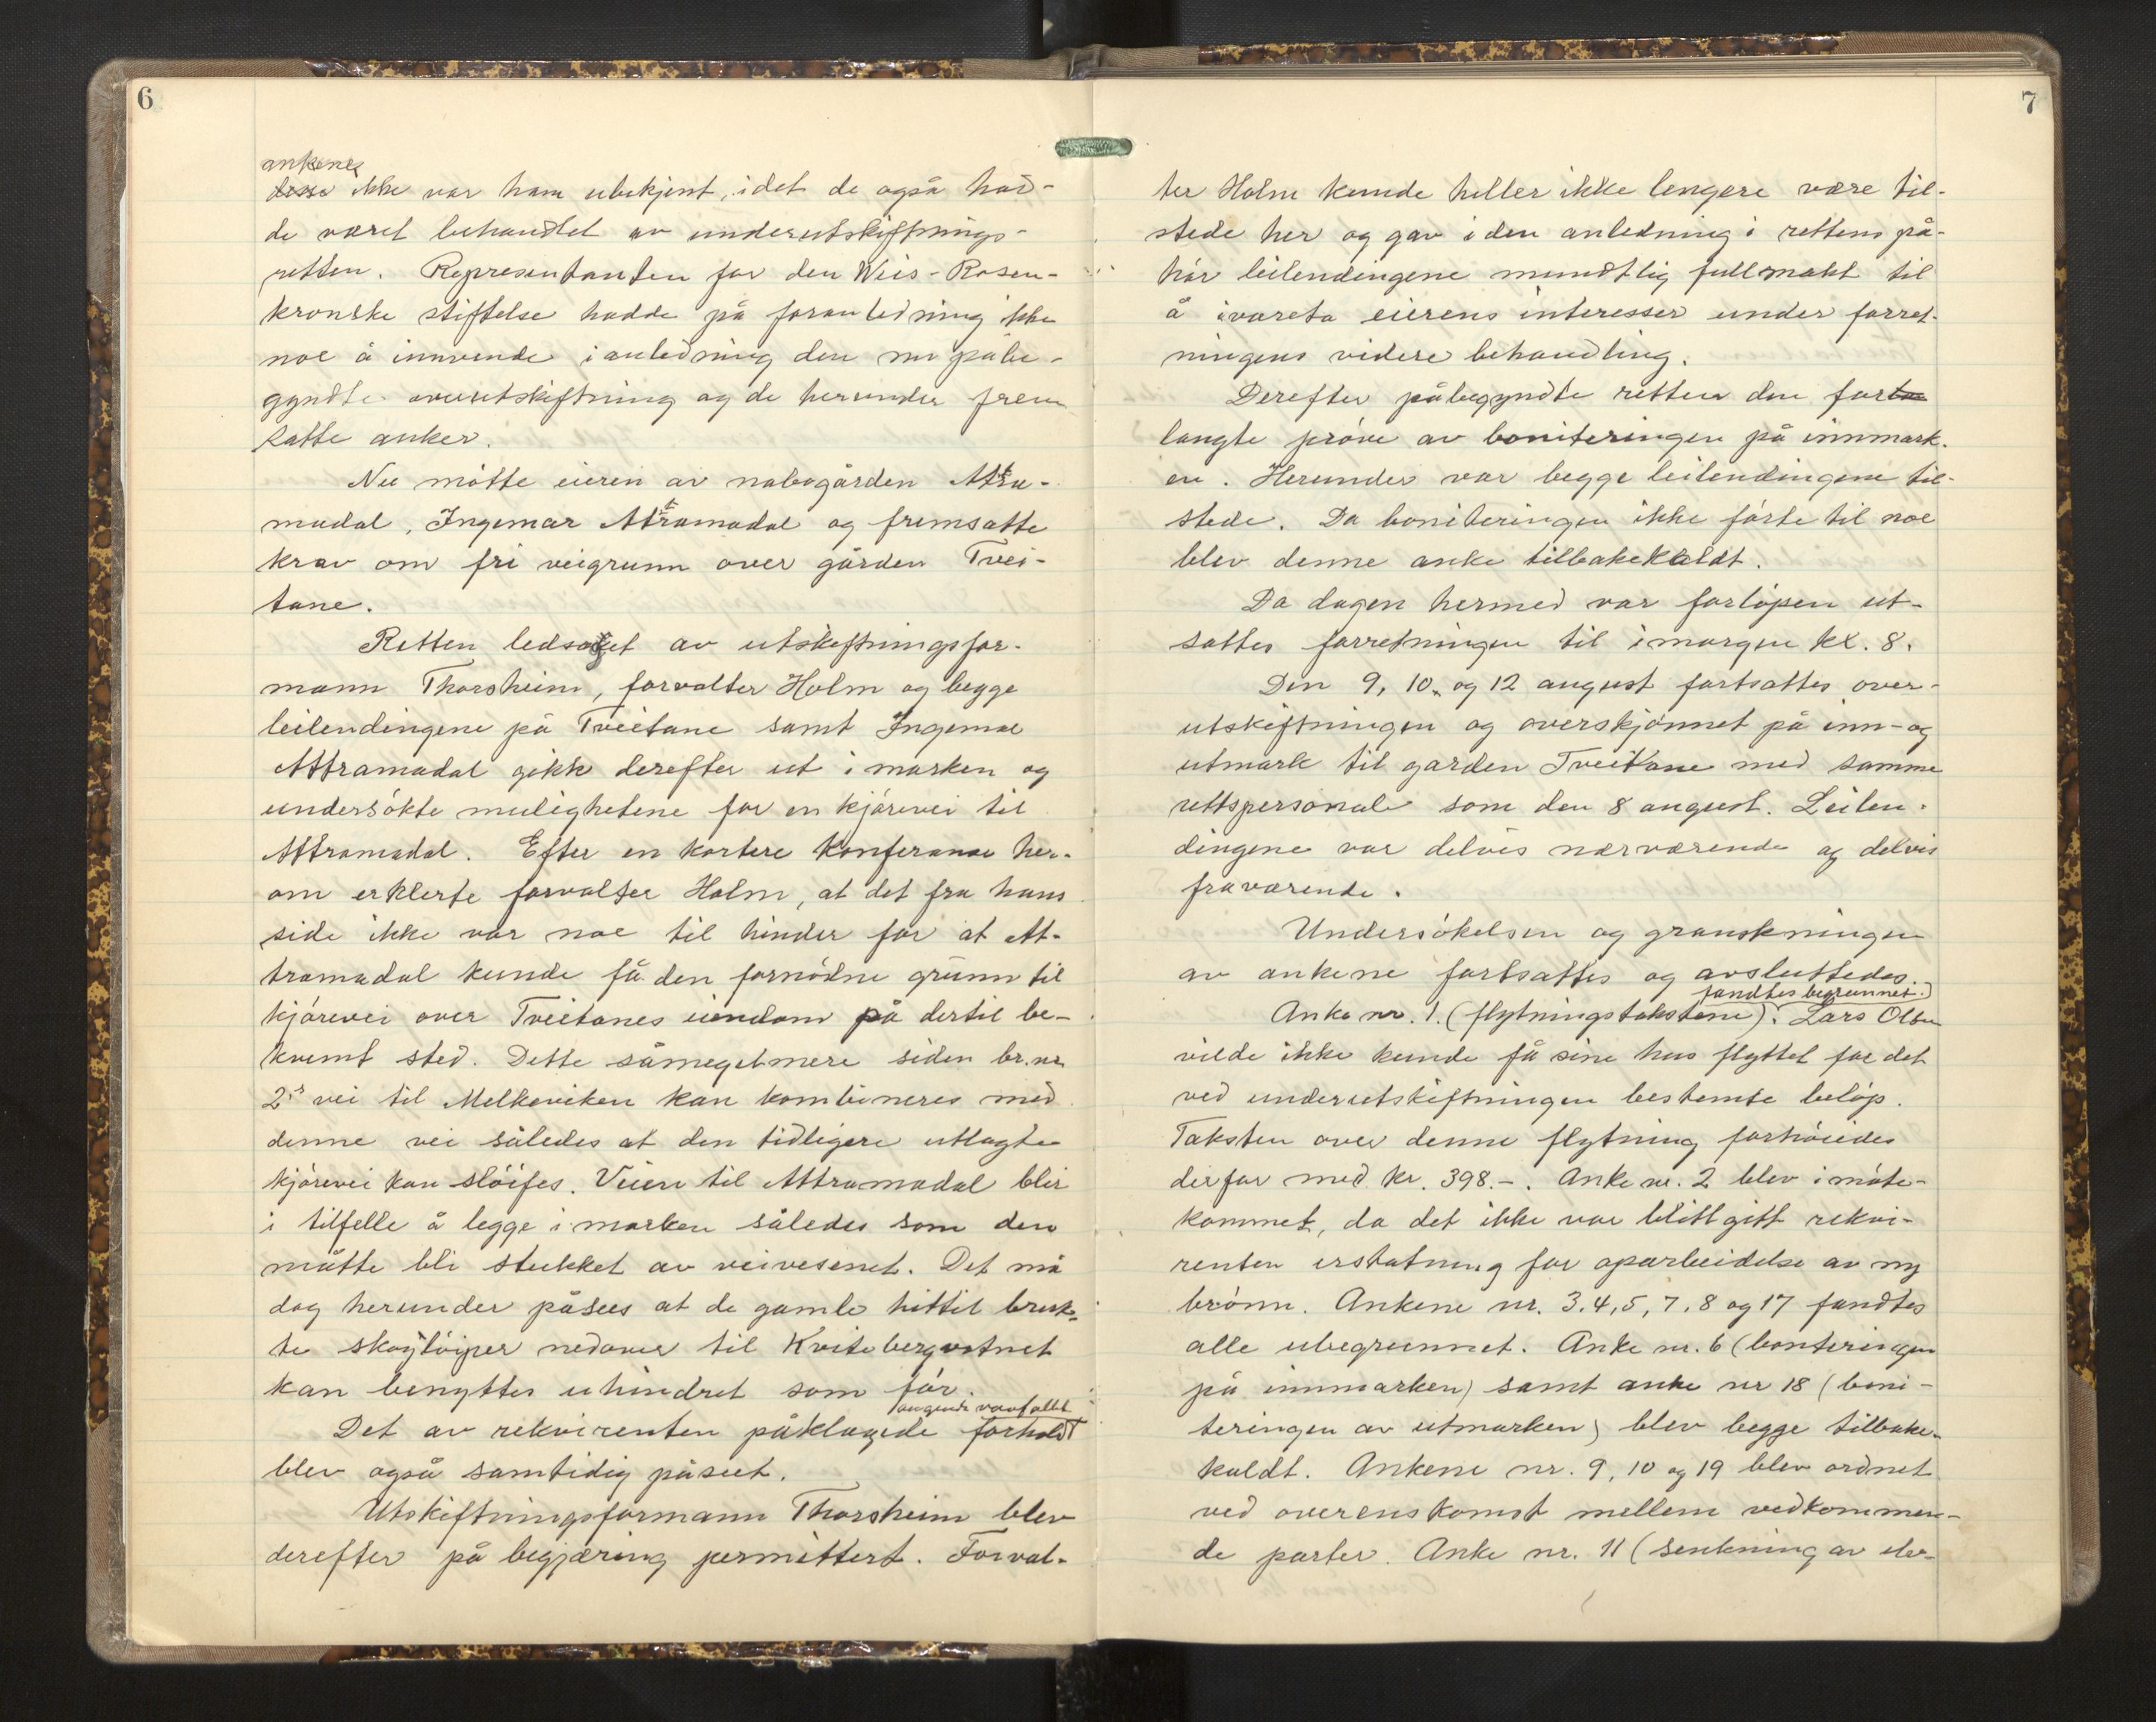 6
ankenes
desse ikke var ham ubekjent, idet de også had-
de været behandlet av underutskiftnings-
retten. Representanten for den Weis-Rosen-
kronske stiftelse hadde på foranledning ikke
noe å innvende i anledning den nu påbe-
gyndte overutskiftning og de herunder frem
satte anker.
Nu møtte eieren av nabogården Attra-
madal, Ingemar Attramadal og fremsatte
krav om fri veigrunn over gården Tvei-
tane.
Retten ledsaget av utskiftningsfor-
mann Thorsheim, forvalter Holm og begge
leilendingene på Tveitane samt Ingemar
Attramadal gikk derefter ut i marken og
undersøkte mulighetene for en kjørevei til
Attramadal. Efter en kortere konferanse her-
om erklerte forvalter Holm, at det fra hans
side ikke var noe til hinder for at At-
tramadal kunde få den fornødne grunn til
kjørevei over Tveitanes eiendom på dertil be-
kvemt sted. Dette såmegetmere siden br.nr.
2's vei til Melkeviken kan kombineres med
denne vei således at den tidligere utlagte
kjørevei kan sløifes. Veien til Attramadal blir
i tilfelle å legge i marken således som den
måtte bli stukket av veivesenet. Det må
dog herunder påsees at de gamle hittil bruk-
te skogløiper nedover til Kvitebergvatnet
kan benyttes uhindret som før.
angående vannfallet
Det av rekvirenten påklagede forholdt
blev også samtidig påseet.
Utskiftningsformann Thorsheim blev
derefter på begjæring permittert. Forval-
7
ter Holm kunde heller ikke lengere være til-
stede her og gav i den anledning i rettens på-
hør leilendingene mundtlig fullmakt til
å ivareta eierens interesser under forret-
ningens videre behandling.
Derefter påbegyndte retten den for
langte prøve av boniteringen på innmark-
en. Herunder var begge leilendingene til-
stede. Da boniteringen ikke førte til noe
blev denne anke tilbakekaldt.
Da dagen hermed var forløpen ut-
sattes forretningen til imorgen kl. 8.
Den 9, 10. og 12 august fortsattes over-
utskiftningen og overskjønnet på inn- og
utmark til garden Tveitane med samme
rettspersonale som den 8 august. Leilen-
dingene var delvis nærværende og delvis
fraværende.
Undersøkelsen og granskningen
av ankene fortsattes og avsluttedes.
fandtes begrunnet.)
Anke nr. 1. (flytningstakstene). Lars Olsen
vilde ikke kunde få sine hus flyttet for det
ved underutskiftningen bestemte beløp.
Taksten over denne flytning forhøiedes
derfor med kr. 398.-. Anke nr. 2 blev imøte-
kommet, da det ikke var blitt gitt rekvi-
renten erstatning for oparbeidelse av ny
brønn. Ankene nr. 3. 4, 5, 7. 8 og 17 fandtes
alle ubegrunnet. Anke nr. 6 (bonteringen
på innmarken) samt anke nr 18 (boni-
teringen av utmarken) blev begge tilbake-
kaldt. Ankene nr. 9, 10 og 19 blev ordnet
ved overenskomst mellem vedkommen-
de parter. Anke nr. 11 (senkning av elv-